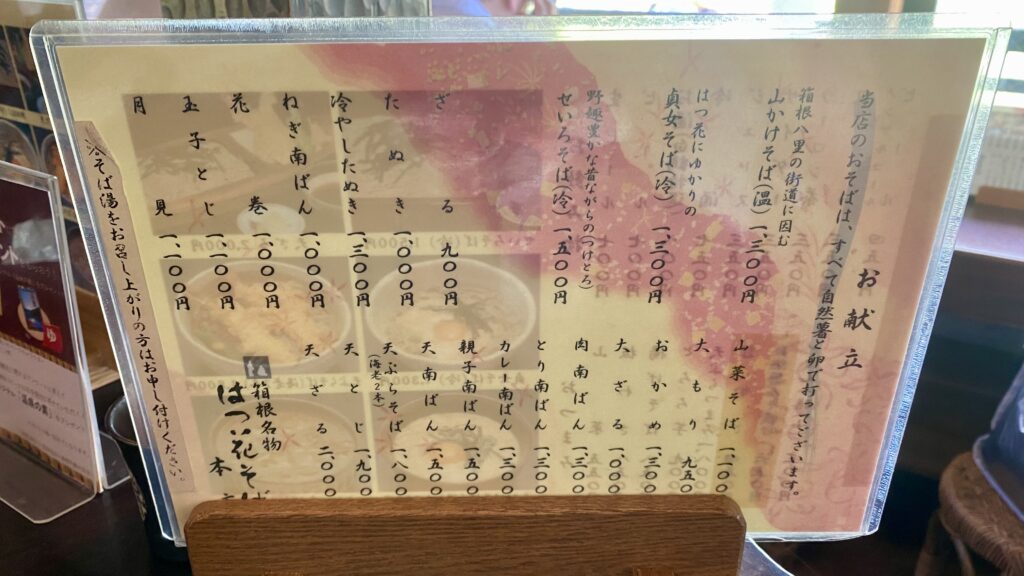 お献立
当店のおそばは、すべて自然薯と卵で打ってございます。
箱根八里の街道に因む
山かけそば(温) 一、三〇〇円
はつ花にゆかりの
貞女そば(冷) 一、三〇〇円
野趣豊かな昔ながらの(つけとろ)
せいろそば(冷) 一、五〇〇円
ざる 九〇〇円
たぬき 一、〇〇〇円
冷やしたぬき 一、三〇〇円
ねぎ南ばん 一、〇〇〇円
花巻 一、〇〇〇円
玉子とじ 一、一〇〇円
月見 一、一〇〇円
山菜そば 一、一〇〇
大もり 九五〇
おかめ 一、三〇〇
大ざる 一、〇〇〇
肉南ばん 一、三〇〇
とり南ばん 一、三〇〇
カレー南ばん 一、三〇〇
親子南ばん 一、五〇〇
天南ばん 一、五〇〇
天ぷらそば(海老2本) 一、八〇〇
天とじ 一、九〇〇
天ざる 二、〇〇〇
箱根名物
はつ花そば
本
※そば湯をお召し上がりの方はお申し付けください。